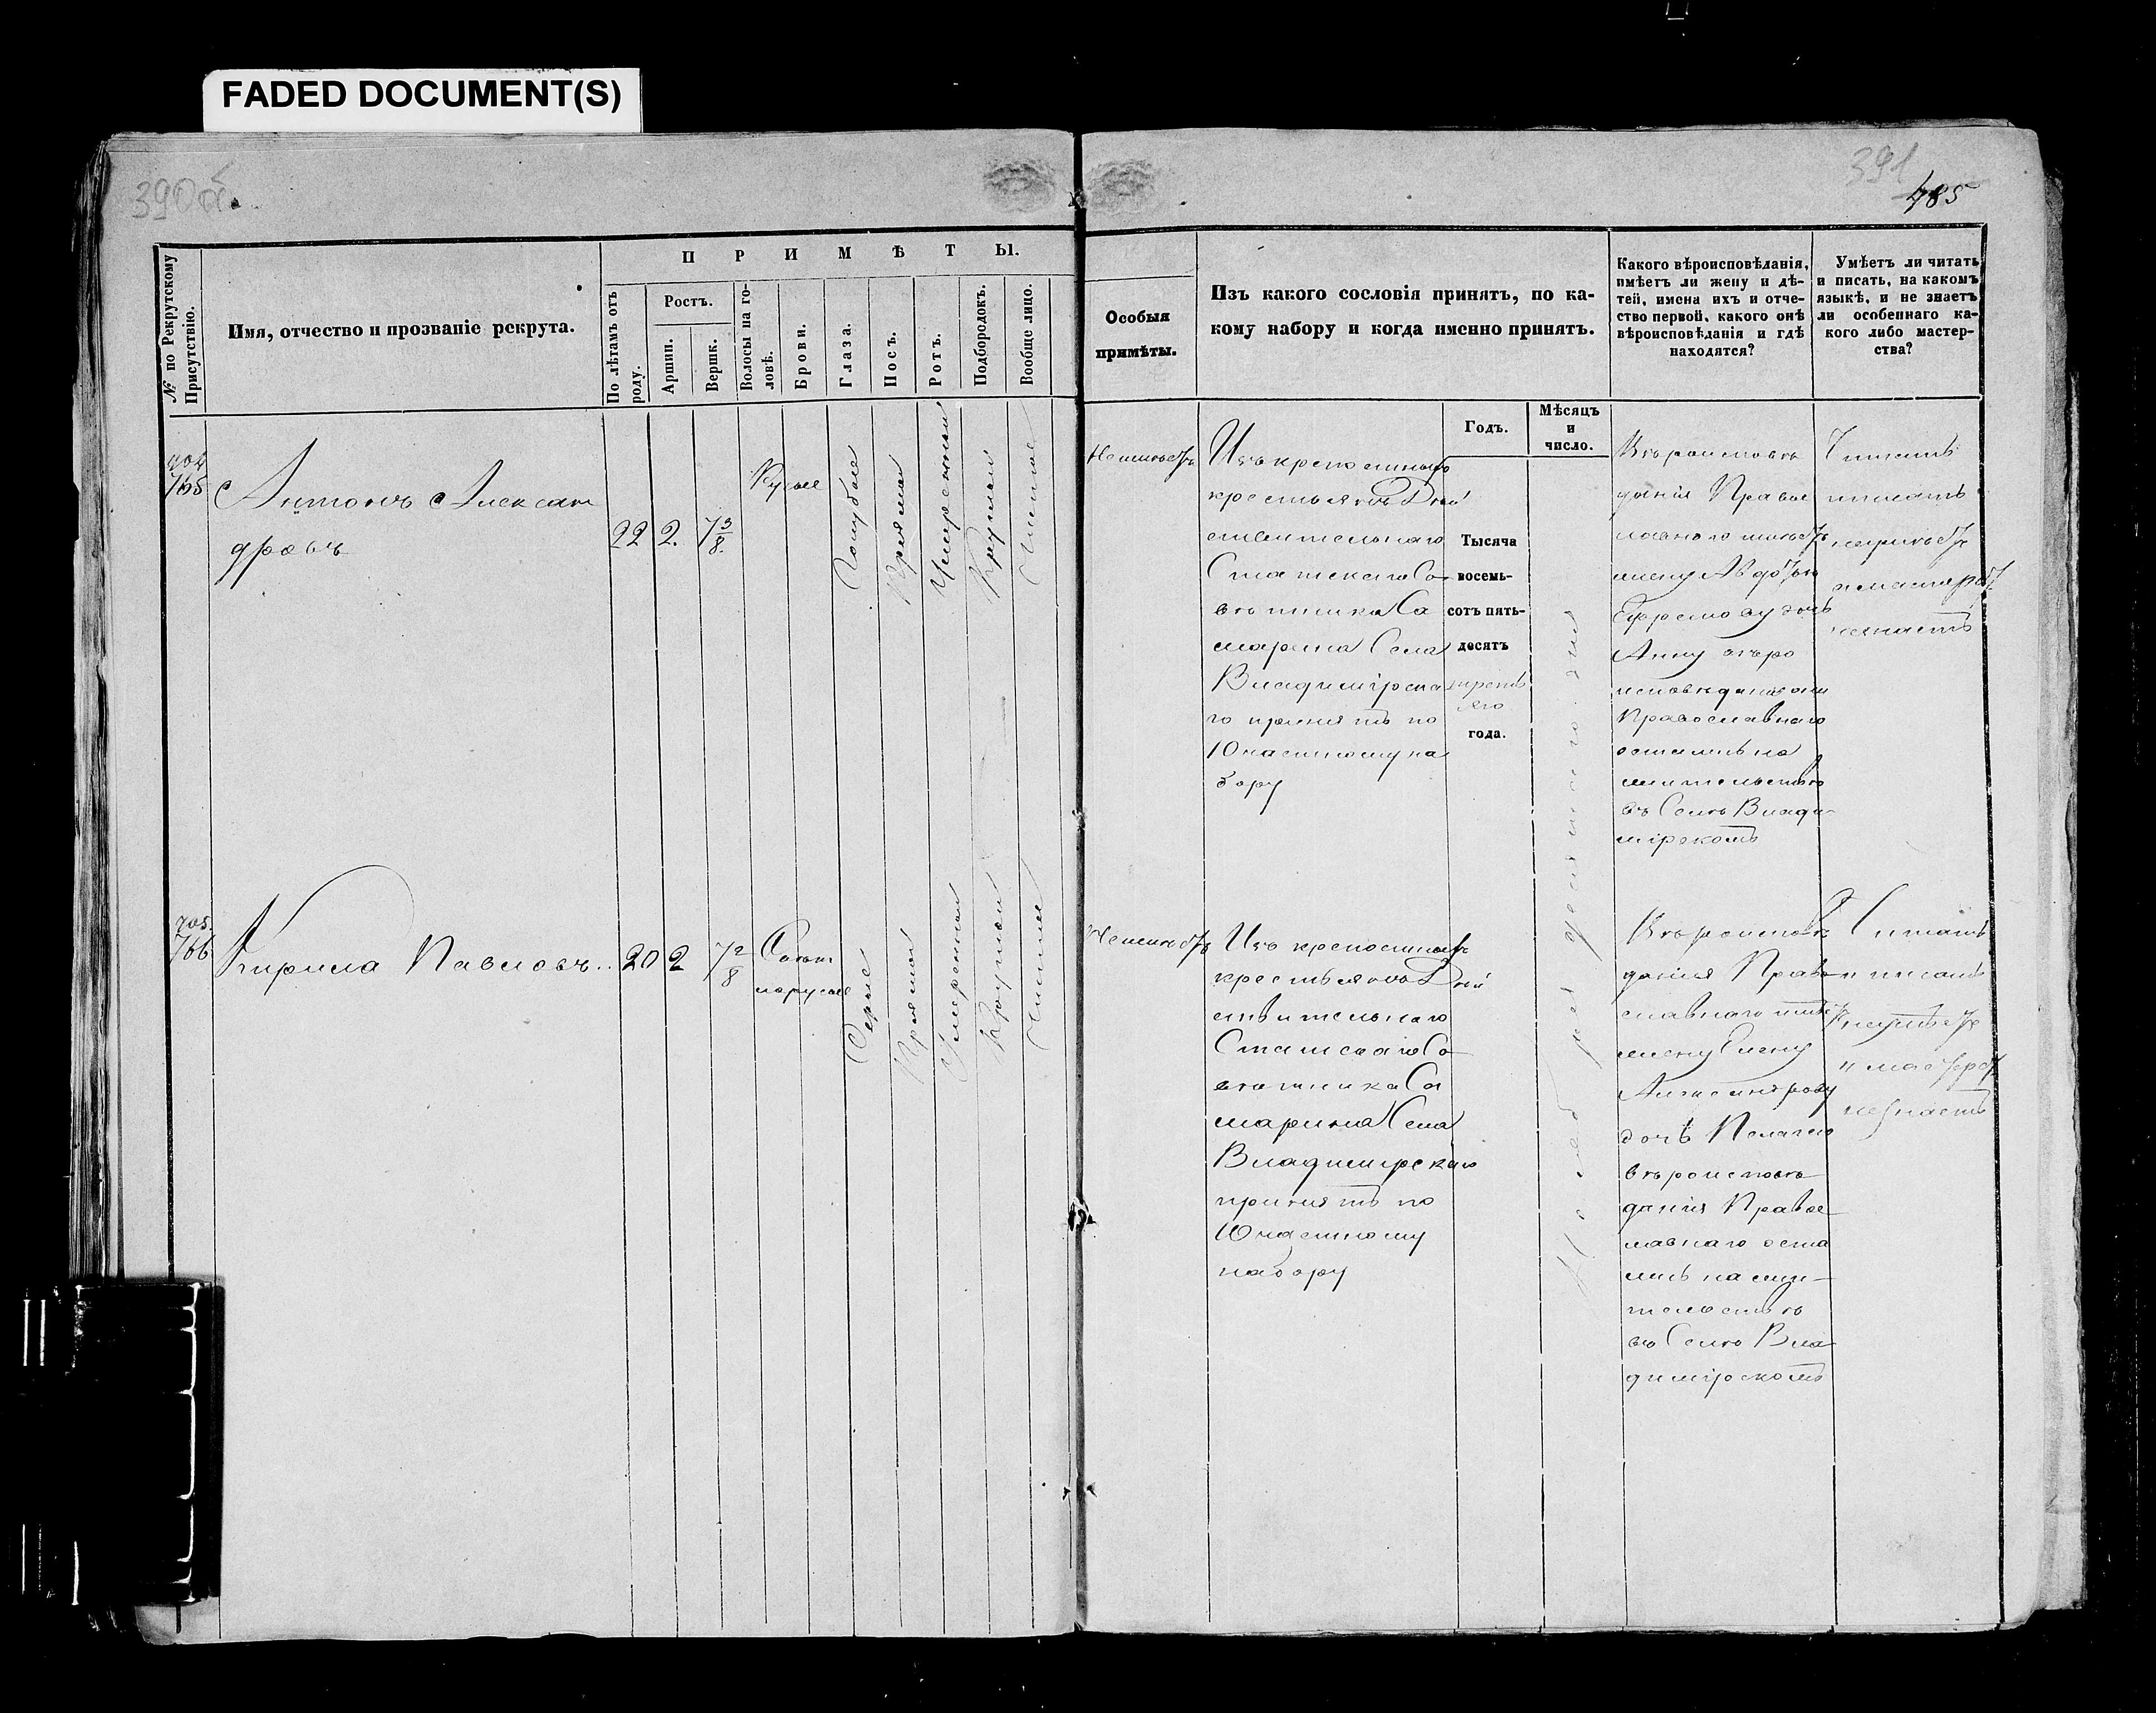 FADED DOCUMENT(S)
390об.
391
485
№ по Рекрутскому Присутствію.
Имя, отчество и прозваніе рекрута.
ПРИМѢТЫ.
По лѣтамъ отъ роду.
Ростъ.
Аршин.
Вершк.
Волосы на головѣ.
Брови.
Глаза.
Носъ.
Ротъ.
Подбородокъ.
Вообще лицо.
Особыя
примѣты.
Изъ какого сословія принятъ, по ка-
кому набору и когда именно принятъ.
Годъ.
Мѣсяцъ
и
число.
Какого вѣроисповѣданія,
имѣетъ ли жену и дѣ-
тей, имена ихъ и отче-
ство первой, какого онѣ
вѣроисповѣданія и гдѣ
находятся?
Умѣетъ ли читать
и писать, на какомъ
языкѣ, и не знаетъ
ли особеннаго ка-
кого либо мастер-
ства?
704
765
Антонъ Алексан
дровъ
22
2.
7 3/8.
Русые
Голубые
Прямой
Умеренный
Круглый
Чистое
Неимеетъ
Изъ крепостныхъ
крестьянъ Дѣй
ствительнаго
Статскаго Со-
вѣтника Са
марина Села
Владимірска
го принятъ по
10 частному на
бору
Тысяча
восемь-
сотъ пять-
десятъ
третьяго
года.
Вѣроисповѣ
данія Правос
лавнаго имѣетъ
жену Авдотью
Ефремову дочь
Анну вѣро
исповѣданія они
Православнаго
остались на
жительствѣ
въ Селѣ Влади-
мірскомъ
Читать
писать
неумѣетъ
и мастерст.
незнаетъ
705.
766
Кирила Павловъ..
20
2
7 2/8
Светло
русые
Серые
Прямой
Умеренной
Круглой
Чистое
Неимѣетъ
Изъ крепостныхъ
крестьянъ Дѣй
ствительнаго
Статскаго Со-
вѣтника Са
марина Села
Владимірскаго
принятъ по
10 частному
набору
Вѣроисповѣ
данія Право-
славнаго имѣетъ
жену Елену
Александрову
дочь Пелагею
вѣроисповѣ
данія Правос-
лавнаго оста
лись на жи-
тельствѣ
въ Селѣ Вла-
димірскомъ
Читать
и писать
неумѣетъ
и мастерст.
незнаетъ